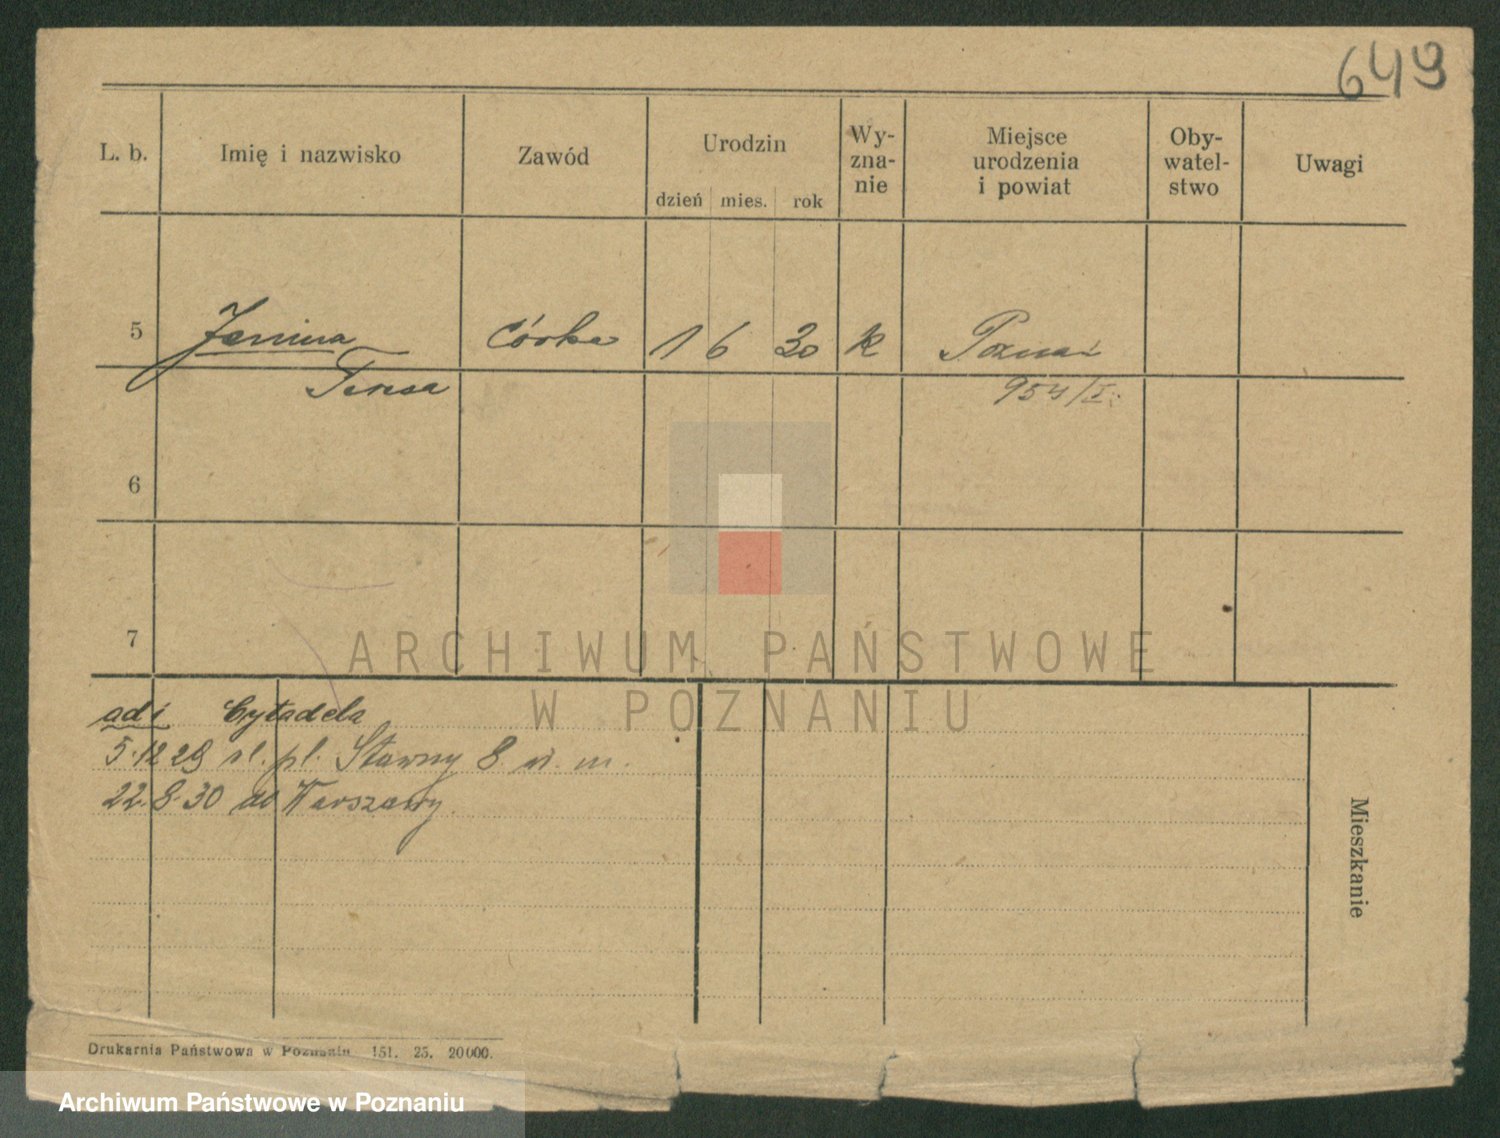 649
L. b. Imię i nazwisko Zawód Urodzin Wy-zna-nie Miejsce urodzenia i powiat Oby-watel-stwo Uwagi
dzień mies. rok
5 Janina Córka 1 6 30 k Poznań
Teresa 954/I.
6
7
ARCHIWUM PAŃSTWOWE
W POZNANIU
ad 1 Cytadela
5.12 29 pl. Stawny 8 n. m.
22.8.30 do Warszawy.
Mieszkanie
Drukarnia Państwowa w Poznaniu 151. 25. 20000.
Archiwum Państwowe w Poznaniu